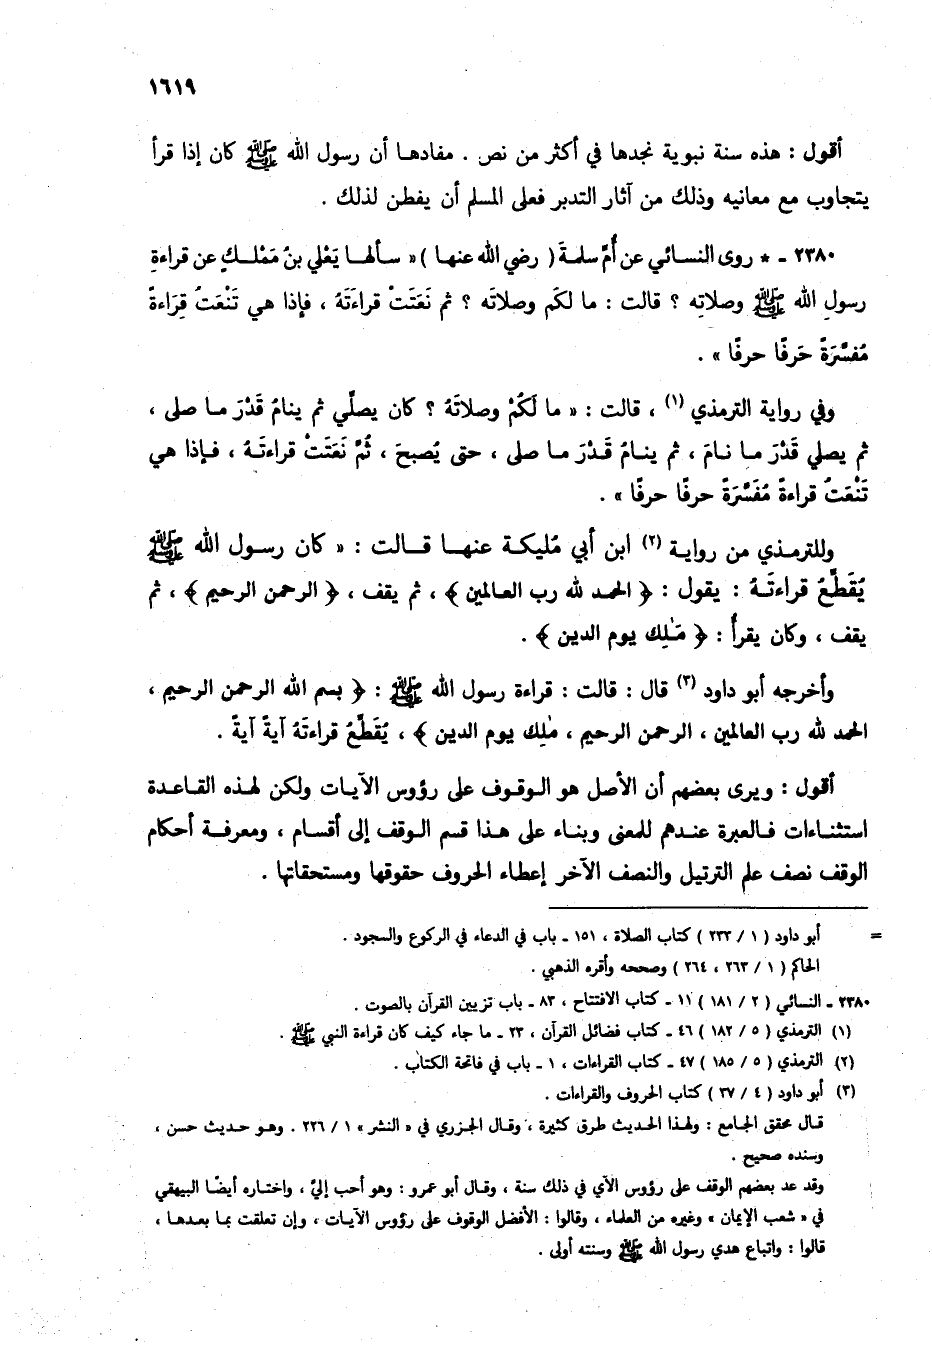 ١٦١٩
أقول : هذه سنة نبوية نجدها في أكثر من نص . مفادها أن رسول الله ﷺ كان إذا قرأ
يتجاوب مع معانيه وذلك من آثار التدبر فعلى المسلم أن يفطن لذلك .
٢٣٨٠ - * روى النسائي عن أُمِّ سلمةَ ( رضي الله عنها ) « سألها يَعْلي بنُ مَمْلكٍ عن قراءةِ
رسولِ الله ﷺ وصلاتِه ؟ قالت : ما لكم وصلاتَه ؟ ثم نَعَتَتْ قراءَتَهُ ، فإذا هي تَنْعَتُ قِرَاءةً
مُفسَّرَةً حَرفًا حرفًا » .
وفي رواية الترمذي (١) ، قالت : « ما لَكُمْ وصلاتَهُ ؟ كان يصلِّي ثم ينامُ قَدْرَ ما صلى ،
ثم يصلي قَدْرَ ما نامَ ، ثم ينامُ قَدْرَ ما صلى ، حتى يُصبحَ ، ثُمَّ نَعَتَتْ قراءتَهُ ، فإذا هي
تَنْعَتُ قراءةً مُفَسَّرَةً حرفًا حرفًا » .
وللترمذي من رواية (٢) ابن أبي مُليكة عنها قالت : « كان رسول الله ﷺ
يُقَطِّعُ قراءتَهُ : يقول : ﴿ الحمد لله رب العالمين ﴾ ، ثم يقف ، ﴿ الرحمن الرحيم ﴾ ، ثم
يقف ، وكان يقرأُ : ﴿ مَـٰلِك يوم الدين ﴾ .
وأخرجه أبو داود (٣) قال : قالت : قراءة رسول الله ﷺ : ﴿ بسم الله الرحمن الرحيم ،
الحمد لله رب العالمين ، الرحمن الرحيم ، مـٰلِك يوم الدين ﴾ ، يُقَطِّعُ قراءتَهُ آيةً آيةً .
أقول : ويرى بعضهم أن الأصل هو الوقوف على رؤوس الآيات ولكن لهذه القاعدة
استثناءات فالعبرة عندهم للمعنى وبناء على هذا قسم الوقف إلى أقسام ، ومعرفة أحكام
الوقف نصف علم الترتيل والنصف الآخر إعطاء الحروف حقوقها ومستحقاتها .
= أبو داود ( ١ / ٢٣٣ ) كتاب الصلاة ، ١٥١ - باب في الدعاء في الركوع والسجود .
الحاكم ( ١ / ٢٦٣ ، ٢٦٤ ) وصححه وأقره الذهبي .
٢٣٨٠ - النسائي ( ٢ / ١٨١ ) ١١ - كتاب الافتتاح ، ٨٣ - باب تزيين القرآن بالصوت .
(١) الترمذي ( ٥ / ١٨٢ ) ٤٦ - كتاب فضائل القرآن ، ٢٣ - ما جاء كيف كان قراءة النبي ﷺ .
(٢) الترمذي ( ٥ / ١٨٥ ) ٤٧ - كتاب القراءات ، ١ - باب في فاتحة الكتاب .
(٣) أبو داود ( ٤ / ٣٧ ) كتاب الحروف والقراءات .
قال محقق الجامع : ولهذا الحديث طرق كثيرة ، وقال الجزري في « النشر » ١ / ٢٢٦ . وهو حديث حسن ،
وسنده صحيح .
وقد عد بعضهم الوقف على رؤوس الآي في ذلك سنة ، وقال أبو عمرو : وهو أحب إليَّ ، واختاره أيضًا البيهقي
في « شعب الإيمان » وغيره من العلماء ، وقالوا : الأفضل الوقوف على رؤوس الآيات ، وإن تعلقت بما بعدها ،
قالوا : واتباع هدي رسول الله ﷺ وسنته أولى .